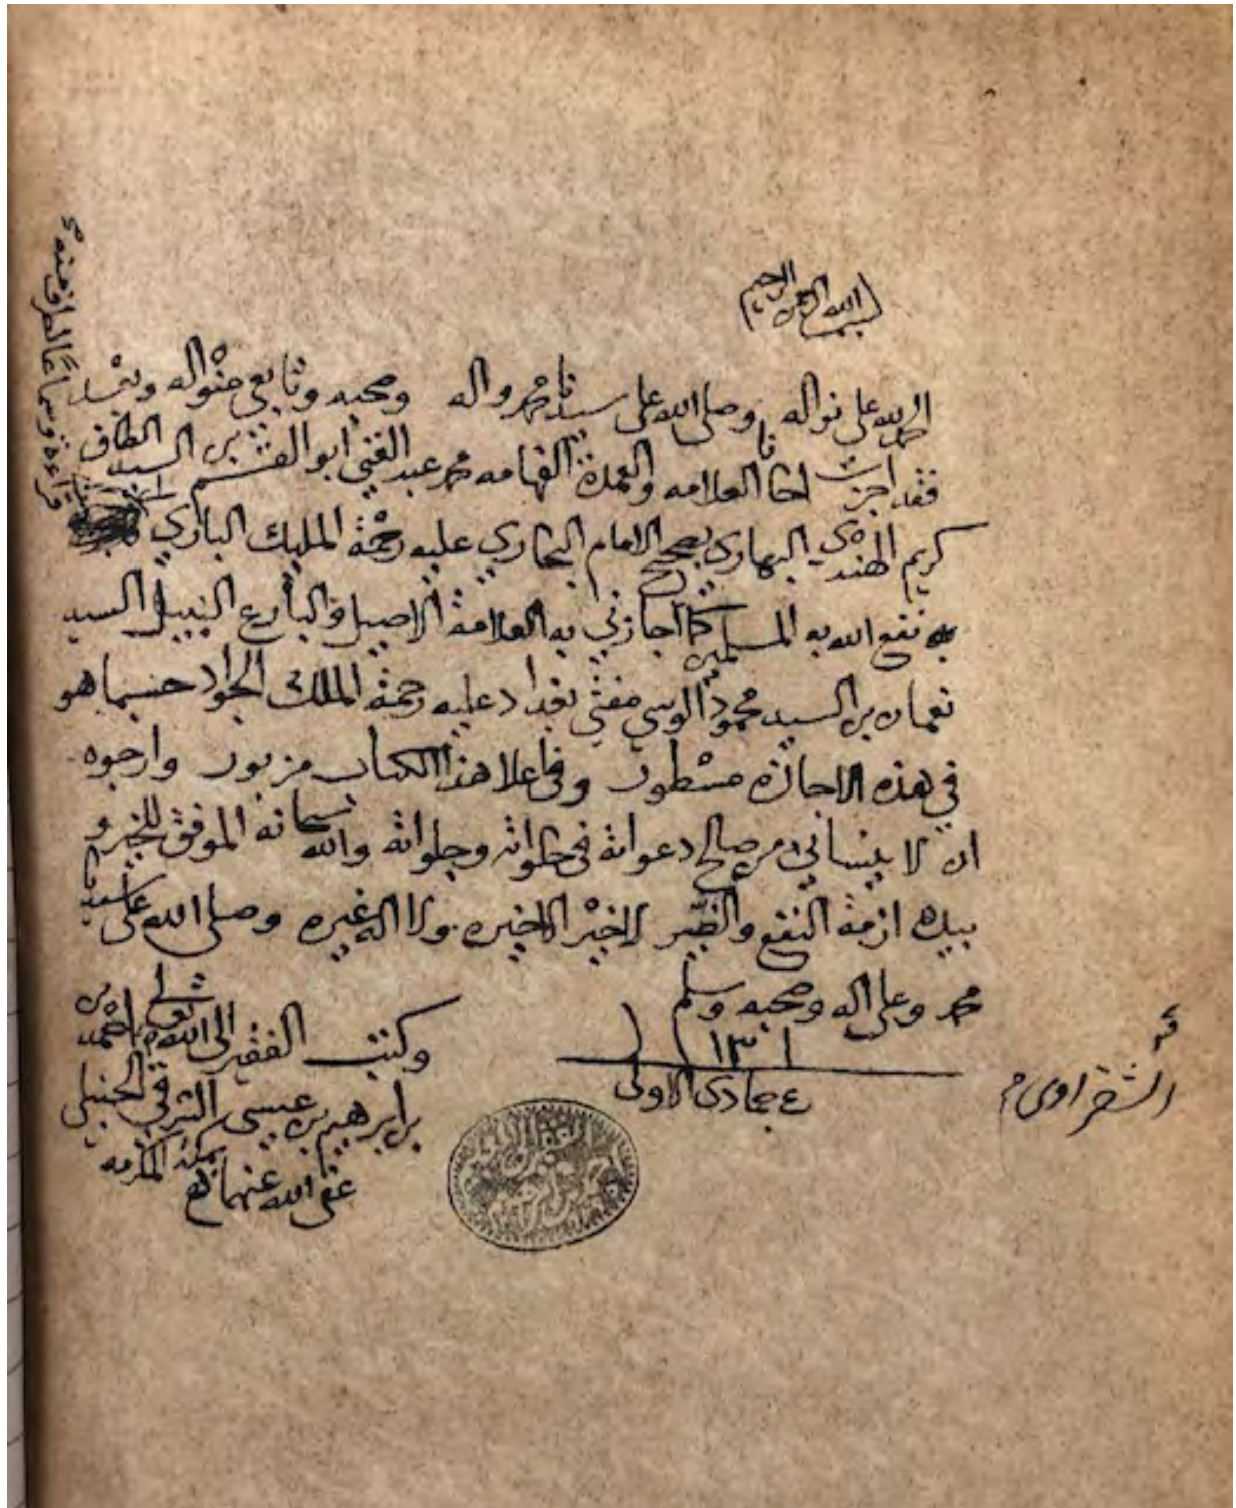 بسم الله الرحمن الرحيم
الحمد لله على نواله وصلى الله على سيدنا محمد واله وصحبه وتابعي منواله وبعد
فقد اجزت اخانا العلامه والعمدة الفهامه محمد عبد الغني ابو القسم بن السيد الطاف
كريم الهندي البهاري بصحيح الامام البخاري عليه رحمة المليك الباري
قراءة وسماعا لطرف منه
نفع الله به المسلمين كما اجازني به العلامة الاصيل والبارع النبيل السيد
نعمان بن السيد محمود الوسي مفتي بغداد عليه رحمة الملك الجواد حسبما هو
في هذه الاجازة مسطور وفي اعلا هذا الكتاب مزبور وارجوه
ان لا ينساني من صالح دعواته في خلواته وجلواته والله سبحانه الموفق للخير و
بيده ازمة النفع والضير لا خير الا خيره ولا اله غيره وصلى الله على سيدنا
محمد وعلى اله وصحبه وسلم
١٣٠١
٤ جمادى الاولى
وكتب الفقير الى الله تعالى احمد بن
بن ابرهيم بن عيسى الشرقي الحنبلي
بمكة المكرمه
عفى الله عنهما